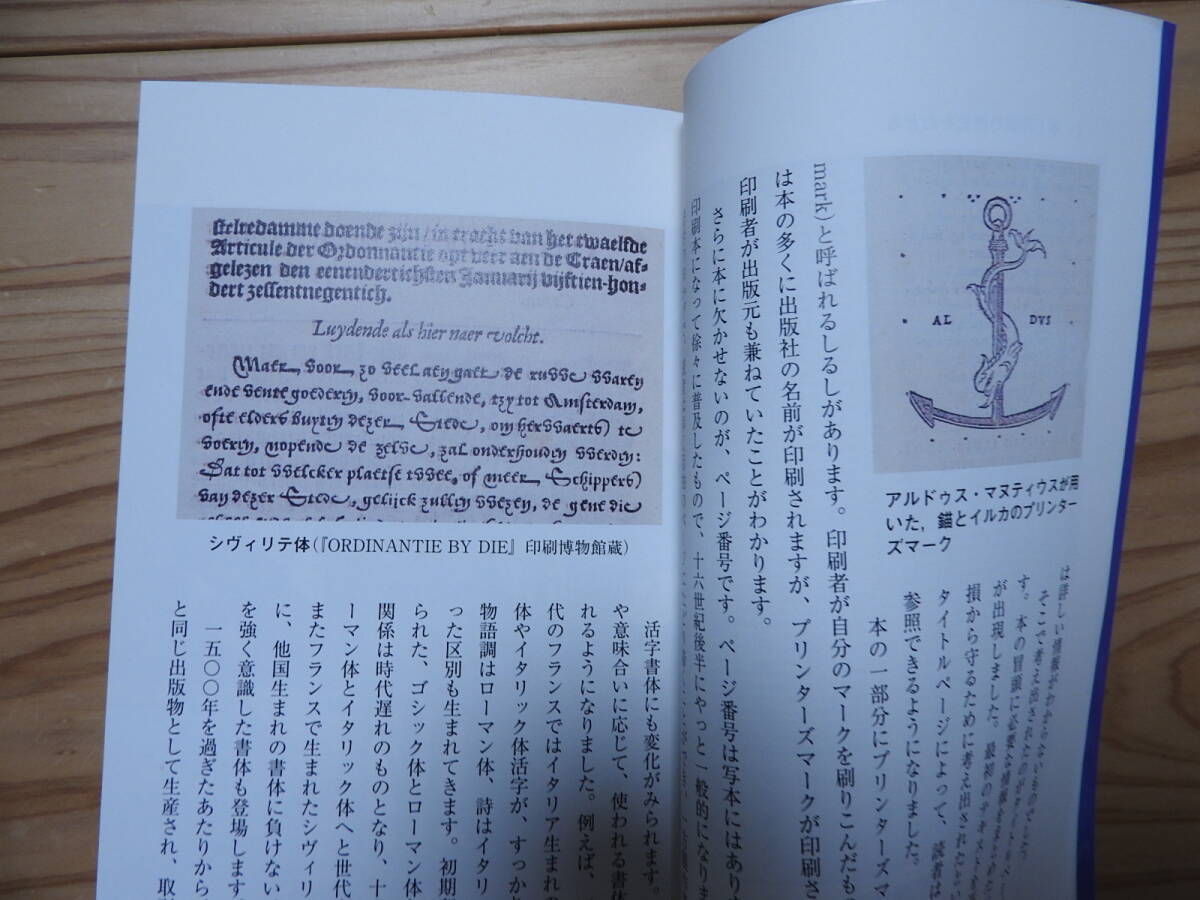 AL DVS
アルドゥス・マヌティウスが用
いた，錨とイルカのプリンター
ズマーク
そこで考え出されたの
が出現しました。最初のテキスト
損から守るために考え出された
タイトルページによって、読者は
参照できるようになりました。
本の一部分にプリンターズマ
mark)と呼ばれるしるしがあります。印刷者が自分のマークを刷りこんだも
は本の多くに出版社の名前が印刷されますが、プリンターズマークが印刷さ
印刷者が出版元も兼ねていたことがわかります。
さらに本に欠かせないのが、ページ番号です。ページ番号は写本にはあり
印刷本になって徐々に普及したもので、十六世紀後半にやっと一般的になりま
stelredamme doende zijn/in cracht van het twaelfde
Articule der Ordonnantie opt veer aen de Craen/af-
gelezen den eenendertichsten Januarij vijftien-hon-
dert zessentnegentich.
Luydende als hier naer volcht.
Maer, voor, zo veel aengaet de russe waren
ende vente goederen, voor-vallende, tzy tot Amsterdam,
ofte elders buyten dezer Stede, om herwaerts te
voeren, nopende de zelve, zal onderhouden werden:
Dat tot welcker plaetse twee, of meer Schippers
van dezer Stede, gelijck zullen wezen, de gene die
シヴィリテ体(『ORDINANTIE BY DIE』印刷博物館蔵)
活字書体にも変化がみられます。
や意味合いに応じて、使われる書体
れるようになりました。例えば、
代のフランスではイタリア生まれの
体やイタリック体活字が、すっか
物語調はローマン体、詩はイタリ
った区別も生まれてきます。初期
られた、ゴシック体とローマン体
関係は時代遅れのものとなり、十
ーマン体とイタリック体へと世代
またフランスで生まれたシヴィリ
に、他国生まれの書体に負けない
を強く意識した書体も登場します
一五〇〇年を過ぎたあたりから
と同じ出版物として生産され、取